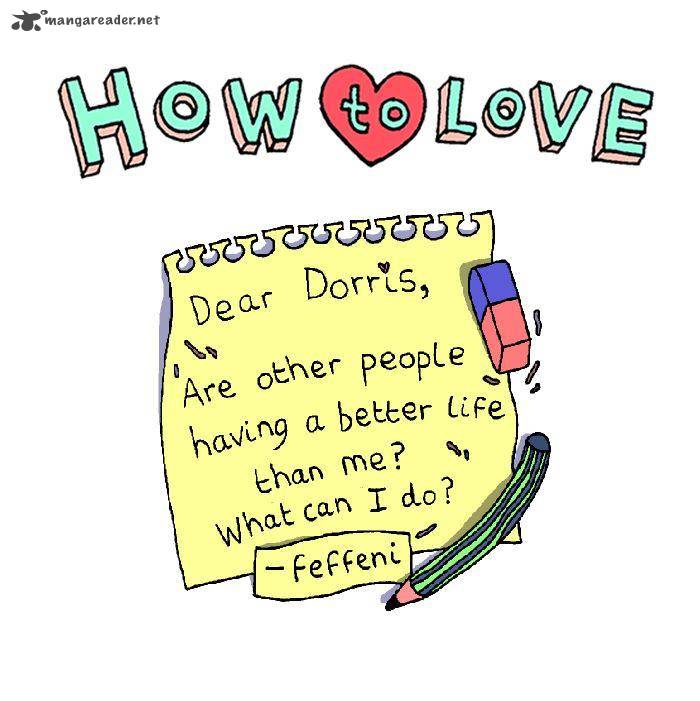 mangareader.net
HOW to LOVE
Dear Dorris,
Are other people
having a better life
than me?
What can I do?
-feffeni